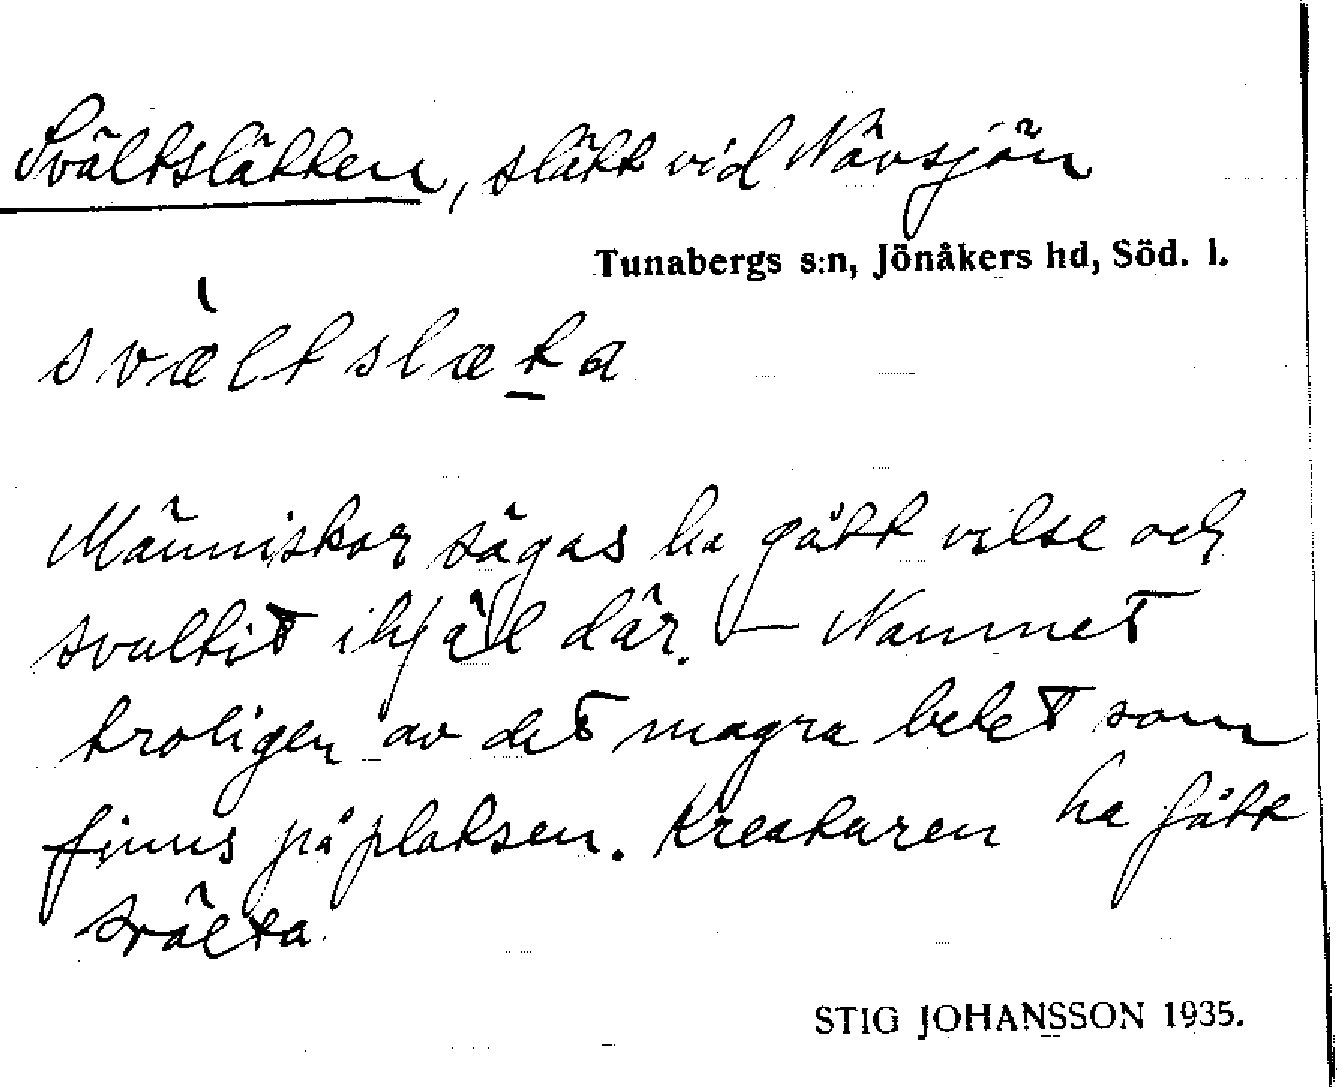 Svältslätten, slätt vid Nävsjön
Tunabergs s:n, Jönåkers hd, Söd. l.
svæ̀ltslæṯa
Människor sägas ha gått vilse och
svultit ihjäl där. — Namnet
troligen av det magra betet som
finns på platsen. Kreaturen ha fått
svälta.
STIG JOHANSSON 1935.